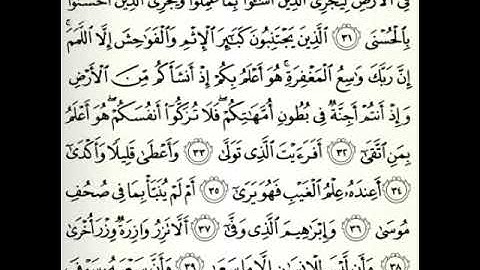 فِى ٱلْأَرْضِ لِيَجْزِىَ ٱلَّذِينَ أَسَٰٓـُٔوا۟ بِمَا عَمِلُوا۟ وَيَجْزِىَ ٱلَّذِينَ أَحْسَنُوا۟
بِٱلْحُسْنَى ٣١ ٱلَّذِينَ يَجْتَنِبُونَ كَبَٰٓئِرَ ٱلْإِثْمِ وَٱلْفَوَٰحِشَ إِلَّا ٱللَّمَمَ ۚ
إِنَّ رَبَّكَ وَٰسِعُ ٱلْمَغْفِرَةِ ۚ هُوَ أَعْلَمُ بِكُمْ إِذْ أَنشَأَكُم مِّنَ ٱلْأَرْضِ
وَإِذْ أَنتُمْ أَجِنَّةٌ فِى بُطُونِ أُمَّهَٰتِكُمْ ۖ فَلَا تُزَكُّوٓا۟ أَنفُسَكُمْ ۖ هُوَ أَعْلَمُ
بِمَنِ ٱتَّقَىٰٓ ٣٢ أَفَرَءَيْتَ ٱلَّذِى تَوَلَّىٰ ٣٣ وَأَعْطَىٰ قَلِيلًا وَأَكْدَىٰٓ
٣٤ أَعِندَهُۥ عِلْمُ ٱلْغَيْبِ فَهُوَ يَرَىٰٓ ٣٥ أَمْ لَمْ يُنَبَّأْ بِمَا فِى صُحُفِ
مُوسَىٰ ٣٦ وَإِبْرَٰهِيمَ ٱلَّذِى وَفَّىٰٓ ٣٧ أَلَّا تَزِرُ وَازِرَةٌ وِزْرَ أُخْرَىٰ
٣٨ وَأَن لَّيْسَ لِلْإِنسَٰنِ إِلَّا مَا سَعَىٰ ٣٩ وَأَنَّ سَعْيَهُۥ سَوْفَ